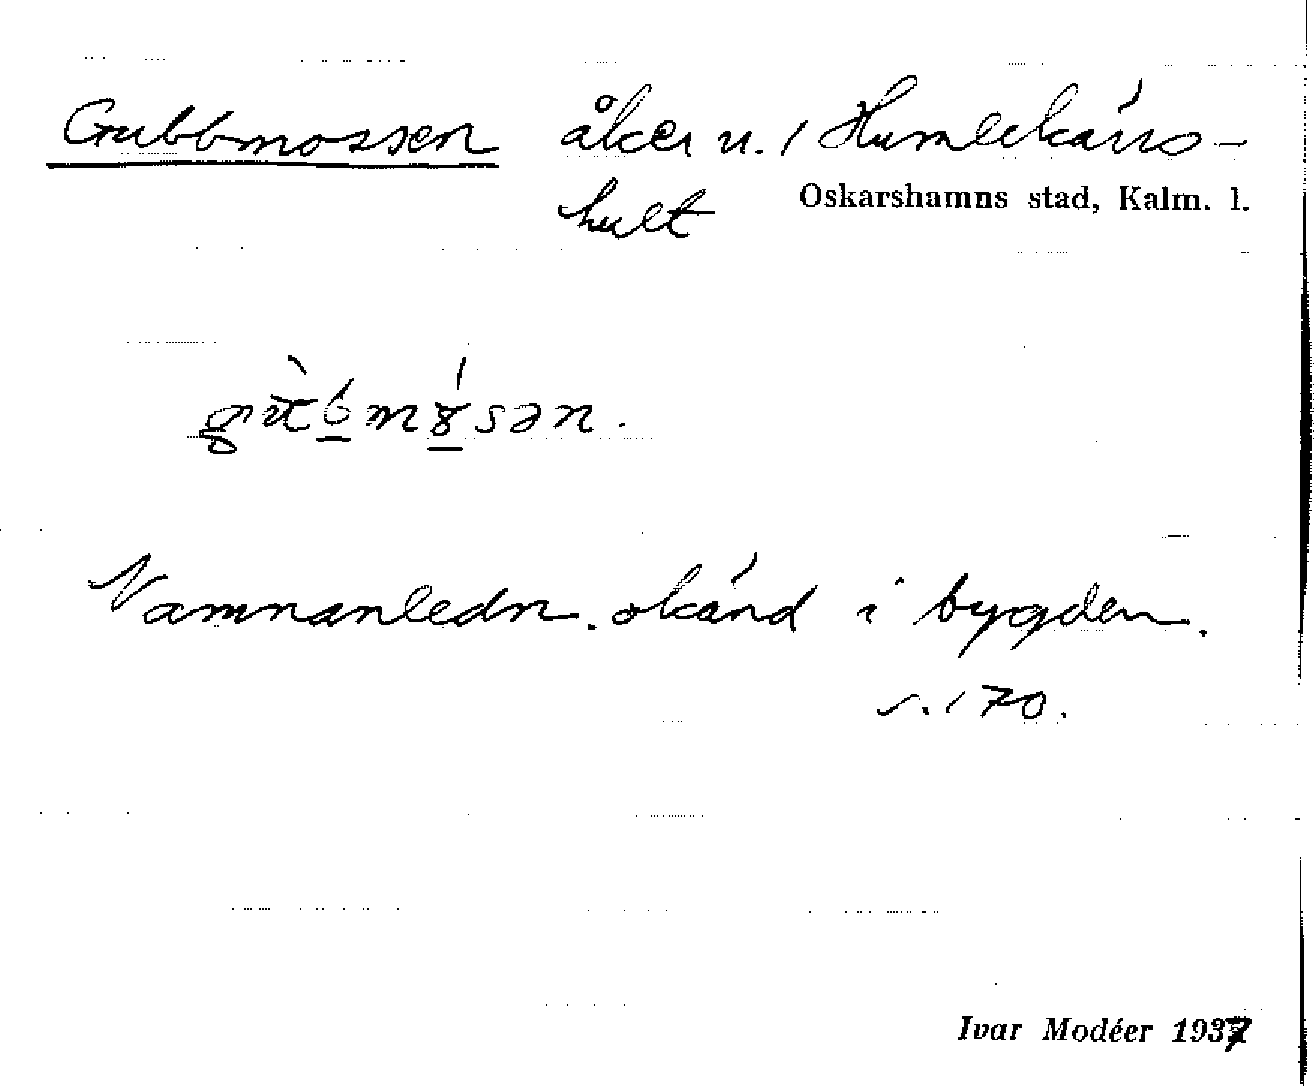 Gubbmossen åker u. / Humlekärrs-
hult Oskarshamns stad, Kalm. l.
Namnanledn. okänd i bygden.
s. 170.
Ivar Modéer 1937